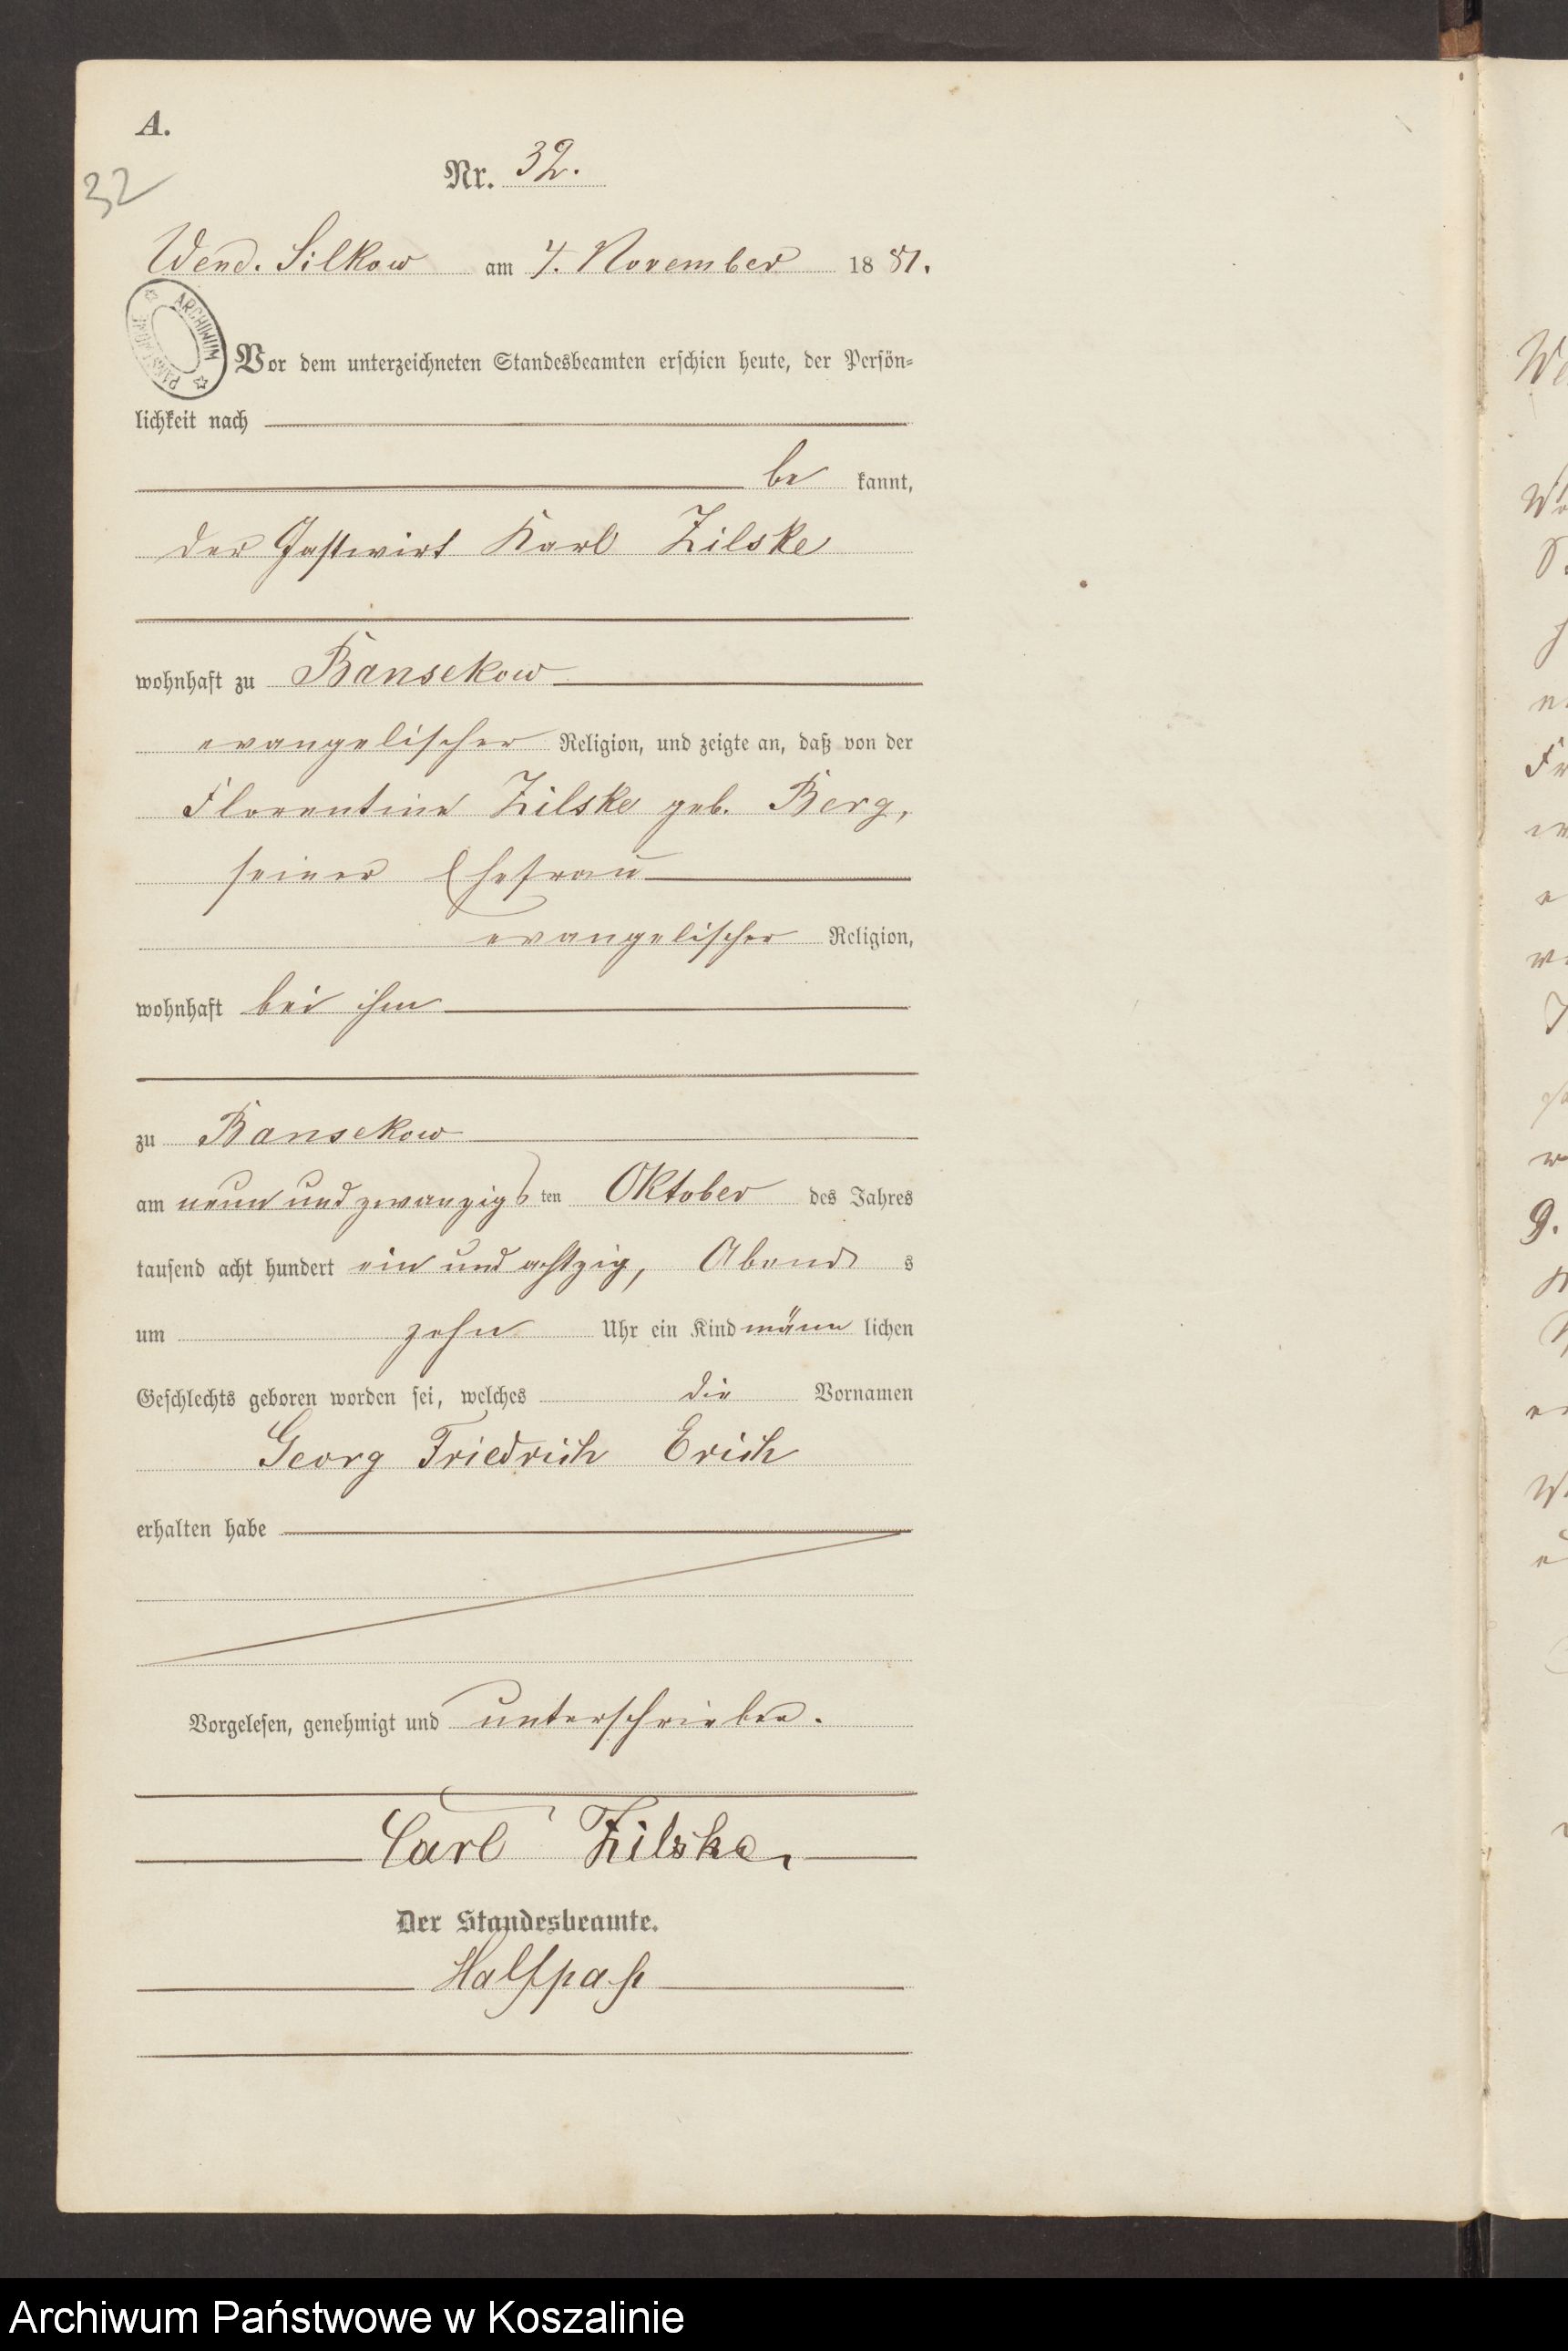 A.
32
Nr. 32.
Wend. Silkow am 4. November 1881.
ARCHIWUM PAŃSTWOWE
Vor dem unterzeichneten Standesbeamten erschien heute, der Persön=
lichkeit nach
be kannt,
der Gastwirt Karl Zilske
wohnhaft zu Bansekow
evangelischer Religion, und zeigte an, daß von der
Florentine Zilske geb. Berg,
seiner Ehefrau
evangelischer Religion,
wohnhaft bei ihm
zu Bansekow
am neun und zwanzigsten Oktober des Jahres
tausend acht hundert ein und achtzig, Abends
um zehn Uhr ein Kind männlichen
Geschlechts geboren worden sei, welches die Vornamen
Georg Friedrich Erich
erhalten habe
Vorgelesen, genehmigt und unterschrieben.
Carl Zilske.
Der Standesbeamte.
Halfpaß
Archiwum Państwowe w Koszalinie